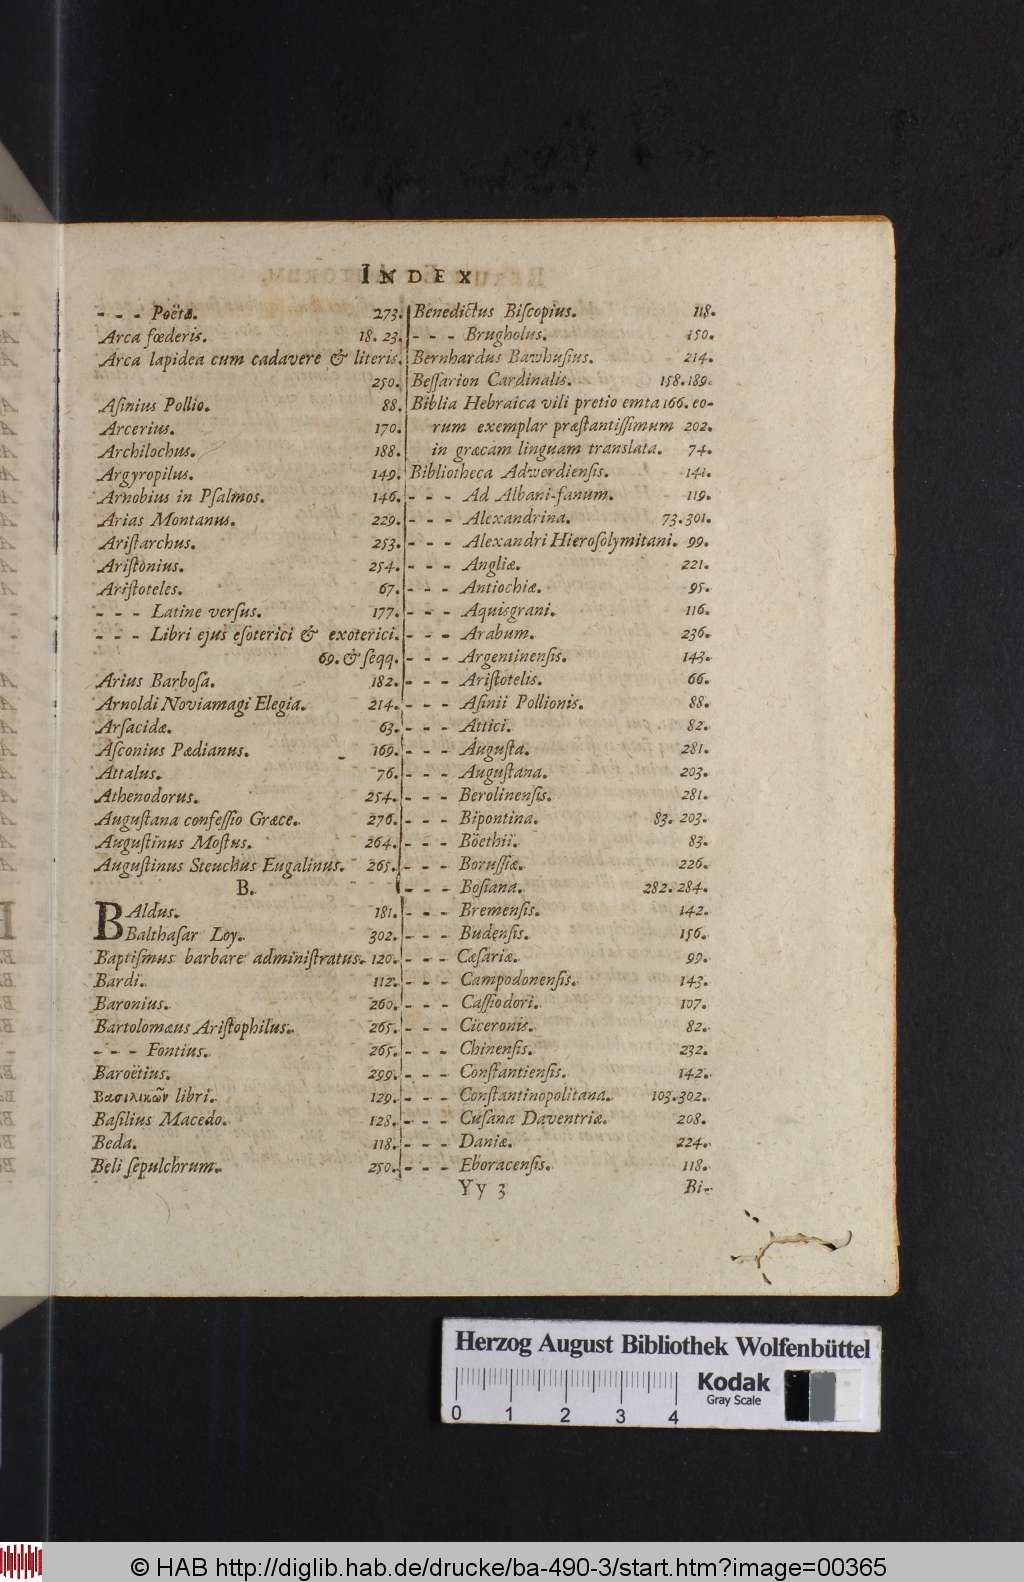 INDEX
- - - Poëtæ. 273.
Arca fœderis. 18. 23.
Arca lapidea cum cadavere & literis.
250.
Aſinius Pollio. 88.
Arcerius. 170.
Archilochus. 188.
Argyropilus. 149.
Arnobius in Pſalmos. 146.
Arias Montanus. 229.
Ariſtarchus. 253.
Ariſtonius. 254.
Ariſtoteles. 67.
- - - Latine verſus. 177.
- - - Libri ejus eſoterici & exoterici.
69. & ſeqq.
Arius Barboſa. 182.
Arnoldi Noviamagi Elegia. 214.
Arſacidæ. 63.
Aſconius Pædianus. 169.
Attalus. 76.
Athenodorus. 254.
Auguſtana confeſſio Græce. 276.
Auguſtinus Moſtus. 264.
Auguſtinus Steuchus Eugalinus. 265.
B.
BAldus. 181.
Balthaſar Loy. 302.
Baptiſmus barbare adminiſtratus. 120.
Bardi. 112.
Baronius. 260.
Bartolomæus Ariſtophilus. 265.
- - - Fontius. 265.
Baroëtius. 299.
Βασιλικῶν libri. 129.
Baſilius Macedo. 128.
Beda. 118.
Beli ſepulchrum. 250.
Benedictus Biſcopius. 118.
- - - Brugholus. 150.
Bernhardus Bawhuſius. 214.
Beſſarion Cardinalis. 158. 189.
Biblia Hebraica vili pretio emta 166. eo-
rum exemplar præſtantiſſimum 202.
in græcam linguam translata. 74.
Bibliotheca Adwerdienſis. 141.
- - - Ad Albani-fanum. 119.
- - - Alexandrina. 73. 301.
- - - Alexandri Hieroſolymitani. 99.
- - - Angliæ. 221.
- - - Antiochiæ. 95.
- - - Aquisgrani. 116.
- - - Arabum. 236.
- - - Argentinenſis. 143.
- - - Ariſtotelis. 66.
- - - Aſinii Pollionis. 88.
- - - Attici. 82.
- - - Auguſta. 281.
- - - Auguſtana. 203.
- - - Berolinenſis. 281.
- - - Bipontina. 83. 203.
- - - Böethii. 83.
- - - Boruſſiæ. 226.
- - - Boſiana. 282. 284.
- - - Bremenſis. 142.
- - - Budenſis. 156.
- - - Cæſariæ. 99.
- - - Campodonenſis. 143.
- - - Caſſiodori. 107.
- - - Ciceronis. 82.
- - - Chinenſis. 232.
- - - Conſtantienſis. 142.
- - - Conſtantinopolitana. 103. 302.
- - - Cuſana Daventriæ. 208.
- - - Daniæ. 224.
- - - Eboracenſis. 118.
Yy 3 Bi-
Herzog August Bibliothek Wolfenbüttel
Kodak
Gray Scale
0 1 2 3 4
© HAB http://diglib.hab.de/drucke/ba-490-3/start.htm?image=00365